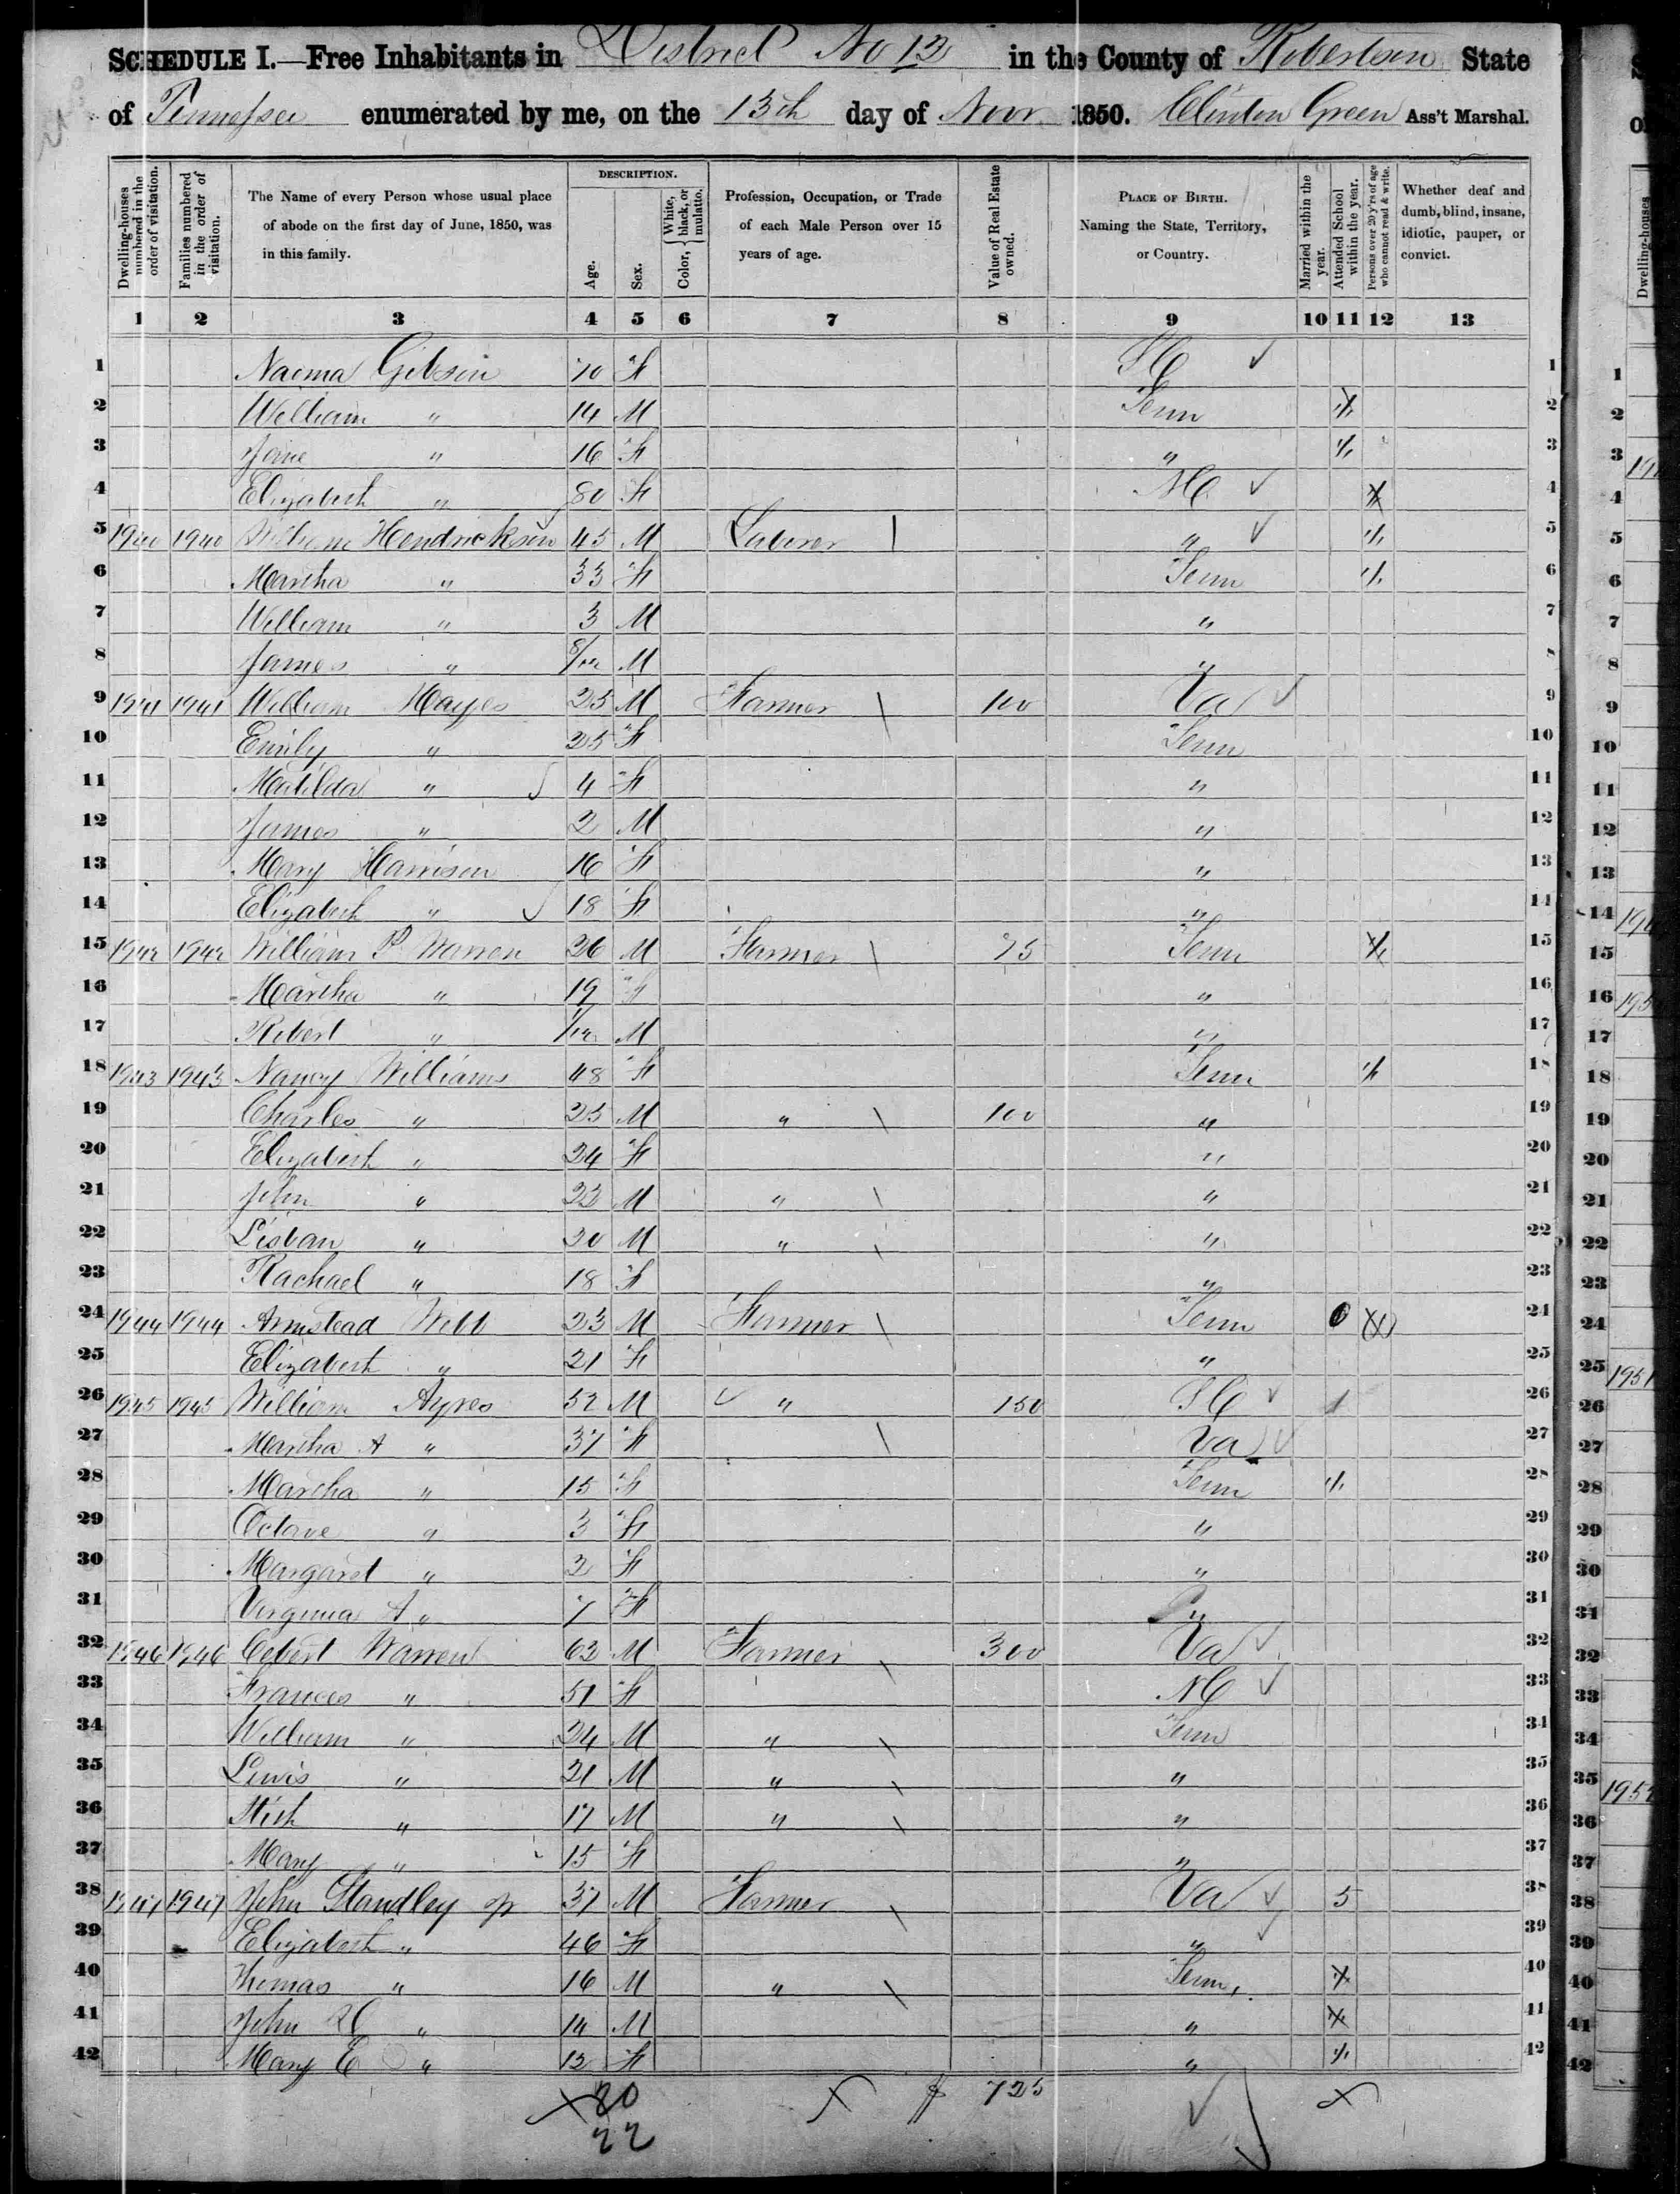 SCHEDULE I.—Free Inhabitants in District No 12 in the County of Robertson State
of Tennessee enumerated by me, on the 13th day of Novr 1850. Clinton Green Ass't Marshal.
Dwelling-houses numbered in the order of visitation.
Families numbered in the order of visitation.
The Name of every Person whose usual place of abode on the first day of June, 1850, was in this family.
DESCRIPTION.
Age.
Sex.
Color, { White, black, or mulatto.
Profession, Occupation, or Trade of each Male Person over 15 years of age.
Value of Real Estate owned.
PLACE OF BIRTH. Naming the State, Territory, or Country.
Married within the year.
Attended School within the year.
Persons over 20 y'rs of age who cannot read & write.
Whether deaf and dumb, blind, insane, idiotic, pauper, or convict.
1 2 3 4 5 6 7 8 9 10 11 12 13
1 Gibson 70 F SC 1
2 William " 14 M Tenn 2
3 Jane " 16 F " 3
4 Elizabeth " 80 F NC 4
5 1940 1940 William Hendrickson 45 M Laborer " 5
6 Martha " 33 F Tenn 6
7 William " 3 M " 7
8 James " 8/12 M " 8
9 1941 1941 William Hayes 25 M Farmer 100 Va 9
10 Emily " 25 F Tenn 10
11 Matilda " 4 F " 11
12 James " 2 M " 12
13 Mary Harrison 16 F " 13
14 Elizabeth " 18 F " 14
15 1942 1942 William P Warren 26 M Farmer 75 Tenn 15
16 Martha " 19 F " 16
17 Robert " 1/12 M " 17
18 1943 1943 Nancy Williams 48 F Tenn 18
19 Charles " 25 M " 100 " 19
20 Elizabeth " 24 F " 20
21 John " 22 M " " 21
22 " M " " 22
23 Rachael " 18 F " 23
24 1944 1944 Armstead Webb 23 M Farmer Tenn 24
25 Elizabeth " 21 F " 25
26 1945 1945 William Ayres 52 M " 150 SC 1 26
27 Martha A " 37 F Va 27
28 Martha " 15 F Tenn 28
29 Octave " 3 F " 29
30 Margaret " 2 F " 30
31 Virginia A " 7 F " 31
32 1946 1946 Warren 62 M Farmer 300 Va 32
33 Frances " 51 F NC 33
34 William " 24 M " Tenn 34
35 Lewis " 21 M " " 35
36 " 17 M " " 36
37 Mary " 15 F " 37
38 1947 1947 John Standley 37 M Farmer Va 5 38
39 Elizabeth " 46 F " 39
40 Thomas " 16 M " Tenn 40
41 John " 14 M " 41
42 Mary E " 12 F " 42
20
22
$ 725